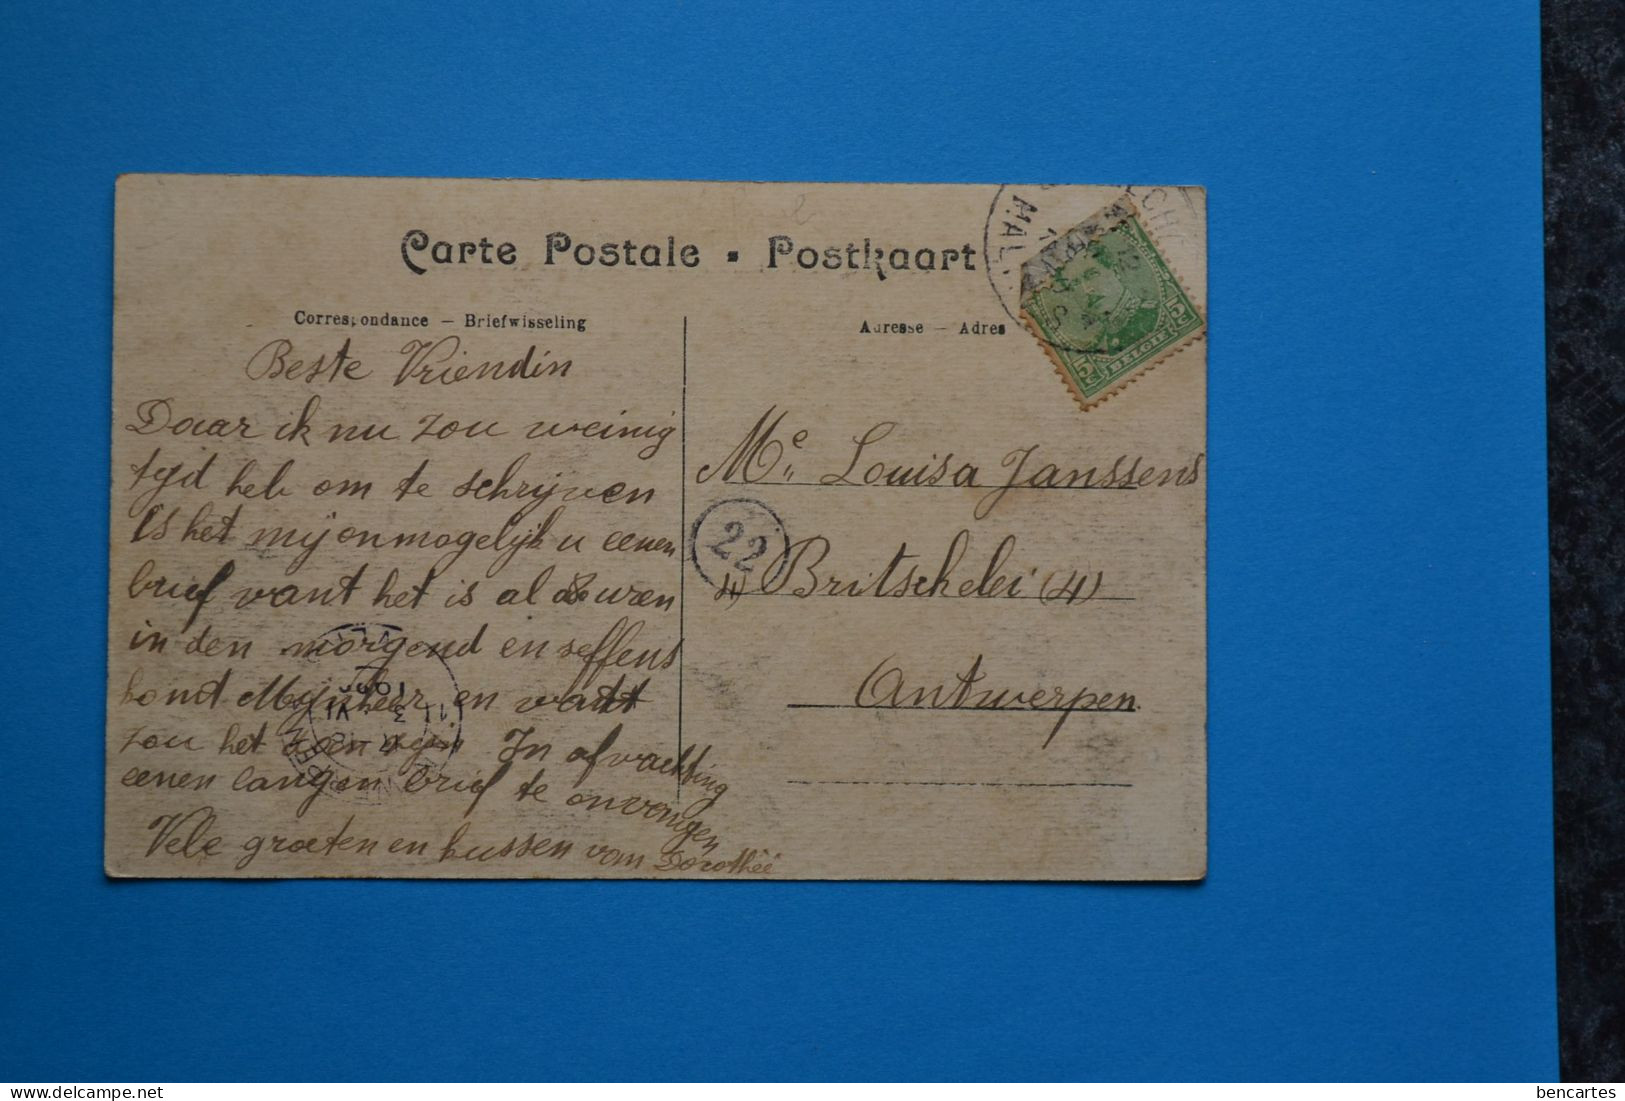 Carte Postale - Postkaart
Correspondance – Briefwisseling
Adresse – Adres
Beste Vriendin
Daar ik nu zou weinig
tyd heb om te schrijven
is het mij onmogelijk u eenen
brief want het is al 8 uren
in den morgend en seffens
komt Mynheer en vatt
zou het
In afvachting
eenen langen brief te onvangen
Vele groeten en kussen van Dorothée
Me Louisa Janssens
22
4) Britschelei (4)
Antwerpen
5c BELGIE 5c
bencartes